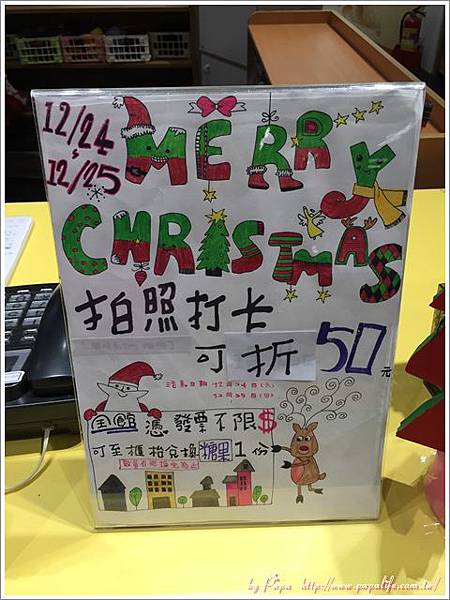 12/24
、
12/25
MERRY
CHRISTMAS
拍照打卡
可折50元
活動日期 12月24日(六)
12月25日(日)
全館憑發票不限$
可至櫃檯兌換糖果1份
by Papa http://www.papalife.com.tw/